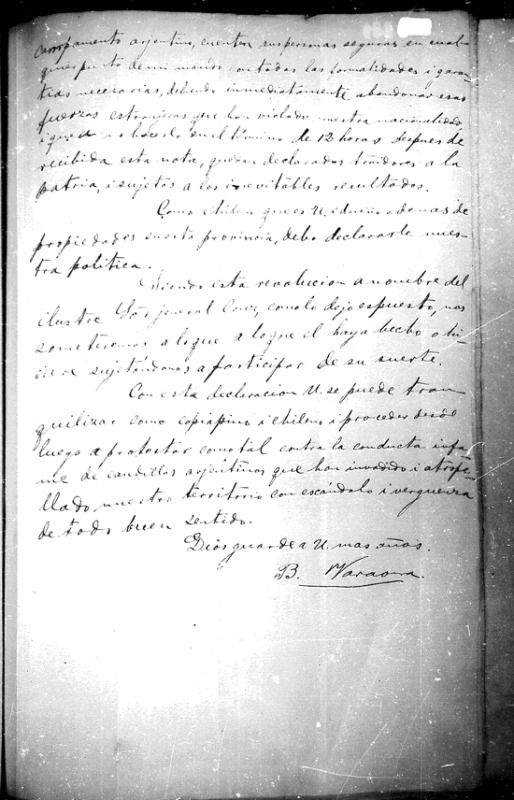 campamento arjentino, cuenten sus personas seguras en cual-
quier punto de mi mando con todas las formalidades i garan-
tias necesarias, debiendo inmediatamente abandonar esas
fuerzas estranjeras que han violado nuestra nacionalidad
i que a no hacerlo en el término de 12 horas despues de
recibida esta nota, quedan declarados traidores a la
patria, i sujetos a los inevitables resultados.
Como chileno que es U. i dueño ademas de
propiedades en esta provincia, debo declararle nues-
tra politica.
Siendo esta revolucion a nombre del
ilustre Sor jeneral Cruz, como lo dejo espuesto, nos
someteremos a loque a loque el haya hecho o hi-
ciera sujetándonos a participar de su suerte.
Con esta declaracion U. se puede tran-
quilizar como copiapino i chileno i proceder desde
luego a protestar como tal contra la conducta infa-
me de caudillos arjentinos que han invadido i atrope-
llado nuestro territorio con escándalo i verguenza
de todo buen sentido.
Dios guarde a U. mas años.
B. Varaona.